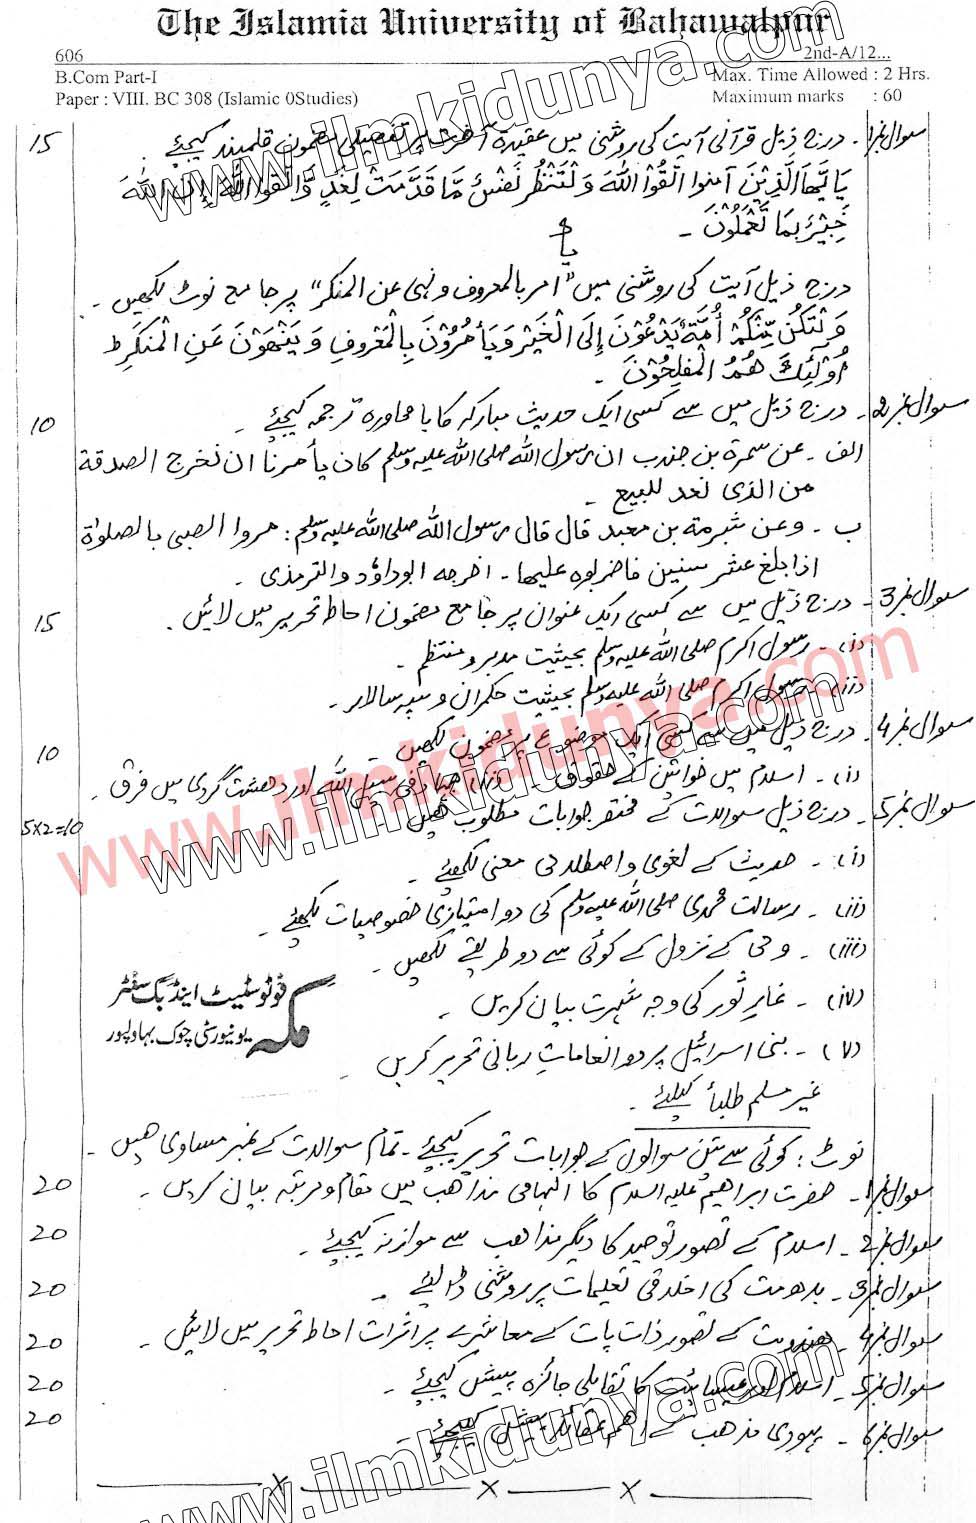 The Islamia University of Bahawalpur
606 2nd-A/12...
B.Com Part-I Max. Time Allowed : 2 Hrs.
Paper : VIII. BC 308 (Islamic 0Studies) Maximum marks : 60
سوال نمبر1۔ درج ذیل قرآنی آیت کی روشنی میں عقیدہ آخرت پر تفصیلی مضمون قلمبند کیجئے۔ 15
یٰاَیُّھَا الَّذِیْنَ آمنوا اتَّقُوْا اللّٰہَ وَلْتَنْظُرْ نَفْسٌ مَّا قَدَّمَتْ لِغَدٍ وَّاتَّقُوا اللّٰہَ اِنَّ اللّٰہَ
خَبِیْرٌ بِمَا تَعْمَلُوْنَ۔
یا
درج ذیل آیت کی روشنی میں "امر بالمعروف و نہی عن المنکر" پر جامع نوٹ لکھیں۔
وَلْتَکُنْ مِّنْکُمْ اُمَّةٌ یَّدْعُوْنَ اِلَی الْخَیْرِ وَیَأْمُرُوْنَ بِالْمَعْرُوْفِ وَیَنْھَوْنَ عَنِ الْمُنْکَرِ ط
اُوْلٰٓئِکَ ھُمُ الْمُفْلِحُوْنَ۔
سوال نمبر2۔ درج ذیل میں سے کسی ایک حدیث مبارکہ کا بامحاورہ ترجمہ کیجئے۔ 10
الف۔ عن سمرة بن جندب ان رسول اللہ صلی اللہ علیہ وسلم کان یأمرنا ان نخرج الصدقة
من الذی نعد للبیع۔
ب۔ وعن شبرمة بن معبد قال قال رسول اللہ صلی اللہ علیہ وسلم: مروا الصبی بالصلوٰة
اذا بلغ عشر سنین فاضربوہ علیھا۔ اخرجہ ابوداؤد والترمذی۔
سوال نمبر3۔ درج ذیل میں سے کسی ایک عنوان پر جامع مضمون احاطہ تحریر میں لائیں۔ 15
(i)۔ رسول اکرم صلی اللہ علیہ وسلم بحیثیت مدبر و منتظم۔
(ii)۔ رسول اکرم صلی اللہ علیہ وسلم بحیثیت حکمران و سپہ سالار۔
سوال نمبر4۔ درج ذیل میں سے کسی ایک موضوع پر مضمون لکھیں۔ 10
(i)۔ اسلام میں خواتین کے حقوق۔ (ii) جہاد فی سبیل اللہ اور دھشت گردی میں فرق۔
سوال نمبر5۔ درج ذیل سوالات کے مختصر جوابات مطلوب ہیں 5x2=10
(i)۔ حدیث کے لغوی و اصطلاحی معنی لکھئے۔
(ii)۔ رسالت محمدی صلی اللہ علیہ وسلم کی دو امتیازی خصوصیات لکھئے۔
(iii)۔ وحی کے نزول کے کوئی سے دو طریقے لکھیں۔
(iv)۔ غارِ ثور کی وجہ شہرت بیان کریں۔
(v)۔ بنی اسرائیل پر دو انعاماتِ ربانی تحریر کریں۔
مکہ فوٹو سٹیٹ اینڈ بک سنٹر
یونیورسٹی چوک بہاولپور
غیر مسلم طلبأ کیلئے۔
نوٹ: کوئی سے تین سوالوں کے جوابات تحریر کیجئے۔ تمام سوالات کے نمبر مساوی ھیں۔
سوال نمبر1۔ حضرت ابراھیم علیہ السلام کا الہامی مذاھب میں مقام و مرتبہ بیان کریں۔ 20
سوال نمبر2۔ اسلام کے تصور توحید کا دیگر مذاھب سے موازنہ کیجئے۔ 20
سوال نمبر3۔ بدھ مت کی اخلاقی تعلیمات پر روشنی ڈالئے۔ 20
سوال نمبر4۔ ھندومت کے تصور ذات پات کے معاشرے پر اثرات احاطہ تحریر میں لائیں۔ 20
سوال نمبر5۔ اسلام اور عیسائیت کا تقابلی جائزہ پیش کیجئے۔ 20
سوال نمبر6۔ یہودی مذھب کے اھم عقائد پیش کیجئے۔ 20
www.ilmkidunya.com
www.ilmkidunya.com
www.ilmkidunya.com
www.ilmkidunya.com